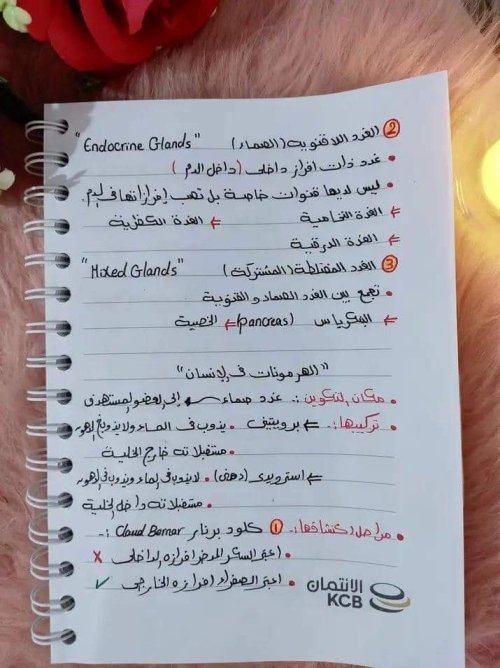 ② الغدد اللاقنوية (الصماء) "Endocrine Glands"
• غدد ذات إفراز داخلي (داخل الدم)
• ليس لديها قنوات خاصة بل تصب إفرازاتها في الدم.
⇐ الغدة النخامية ⇐ الغدة الكظرية
⇐ الغدة الدرقية
③ الغدد المختلطة (المشتركة) "Mixed Glands"
• تجمع بين الغدد الصماء والقنوية
⇐ البنكرياس (pancreas) ⇐ الخصية
"الهرمونات في الإنسان"
• مكان التكوين :. غدد صماء ← إلى العضو المستهدف
• تركيبها :. ⇐ بروتيني • يذوب في الماء ولا يذوب في الدهون
• مستقبلاته خارج الخلية
⇐ استرويدي (دهني) • لا يذوب في الماء ويذوب في الدهون
• مستقبلاته داخل الخلية
• مراحل اكتشافها :. ① كلود برنار Claud Bernar :.
• اعتبر السكر المدخر إفرازه الداخلي ×
• اعتبر الصفراء إفرازه الخارجي ✓
الائتمان
KCB